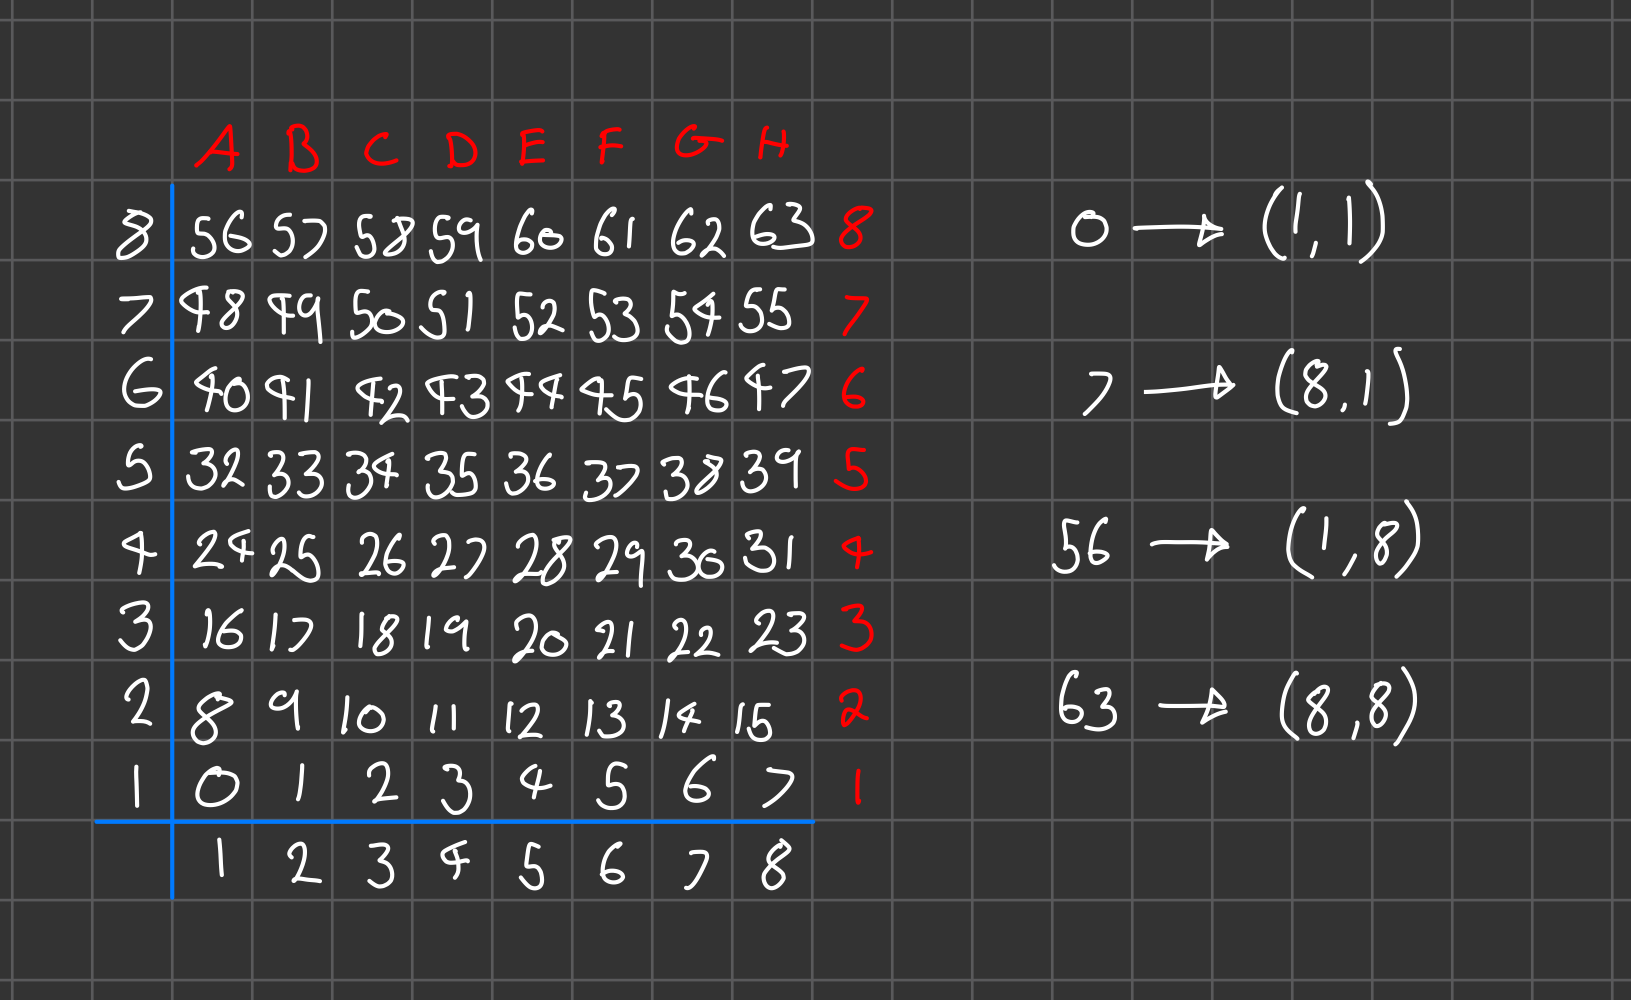 A B C D E F G H
8 56 57 58 59 60 61 62 63 8
7 48 49 50 51 52 53 54 55 7
6 40 41 42 43 44 45 46 47 6
5 32 33 34 35 36 37 38 39 5
4 24 25 26 27 28 29 30 31 4
3 16 17 18 19 20 21 22 23 3
2 8 9 10 11 12 13 14 15 2
1 0 1 2 3 4 5 6 7 1
1 2 3 4 5 6 7 8
0 → (1,1)
7 → (8,1)
56 → (1,8)
63 → (8,8)